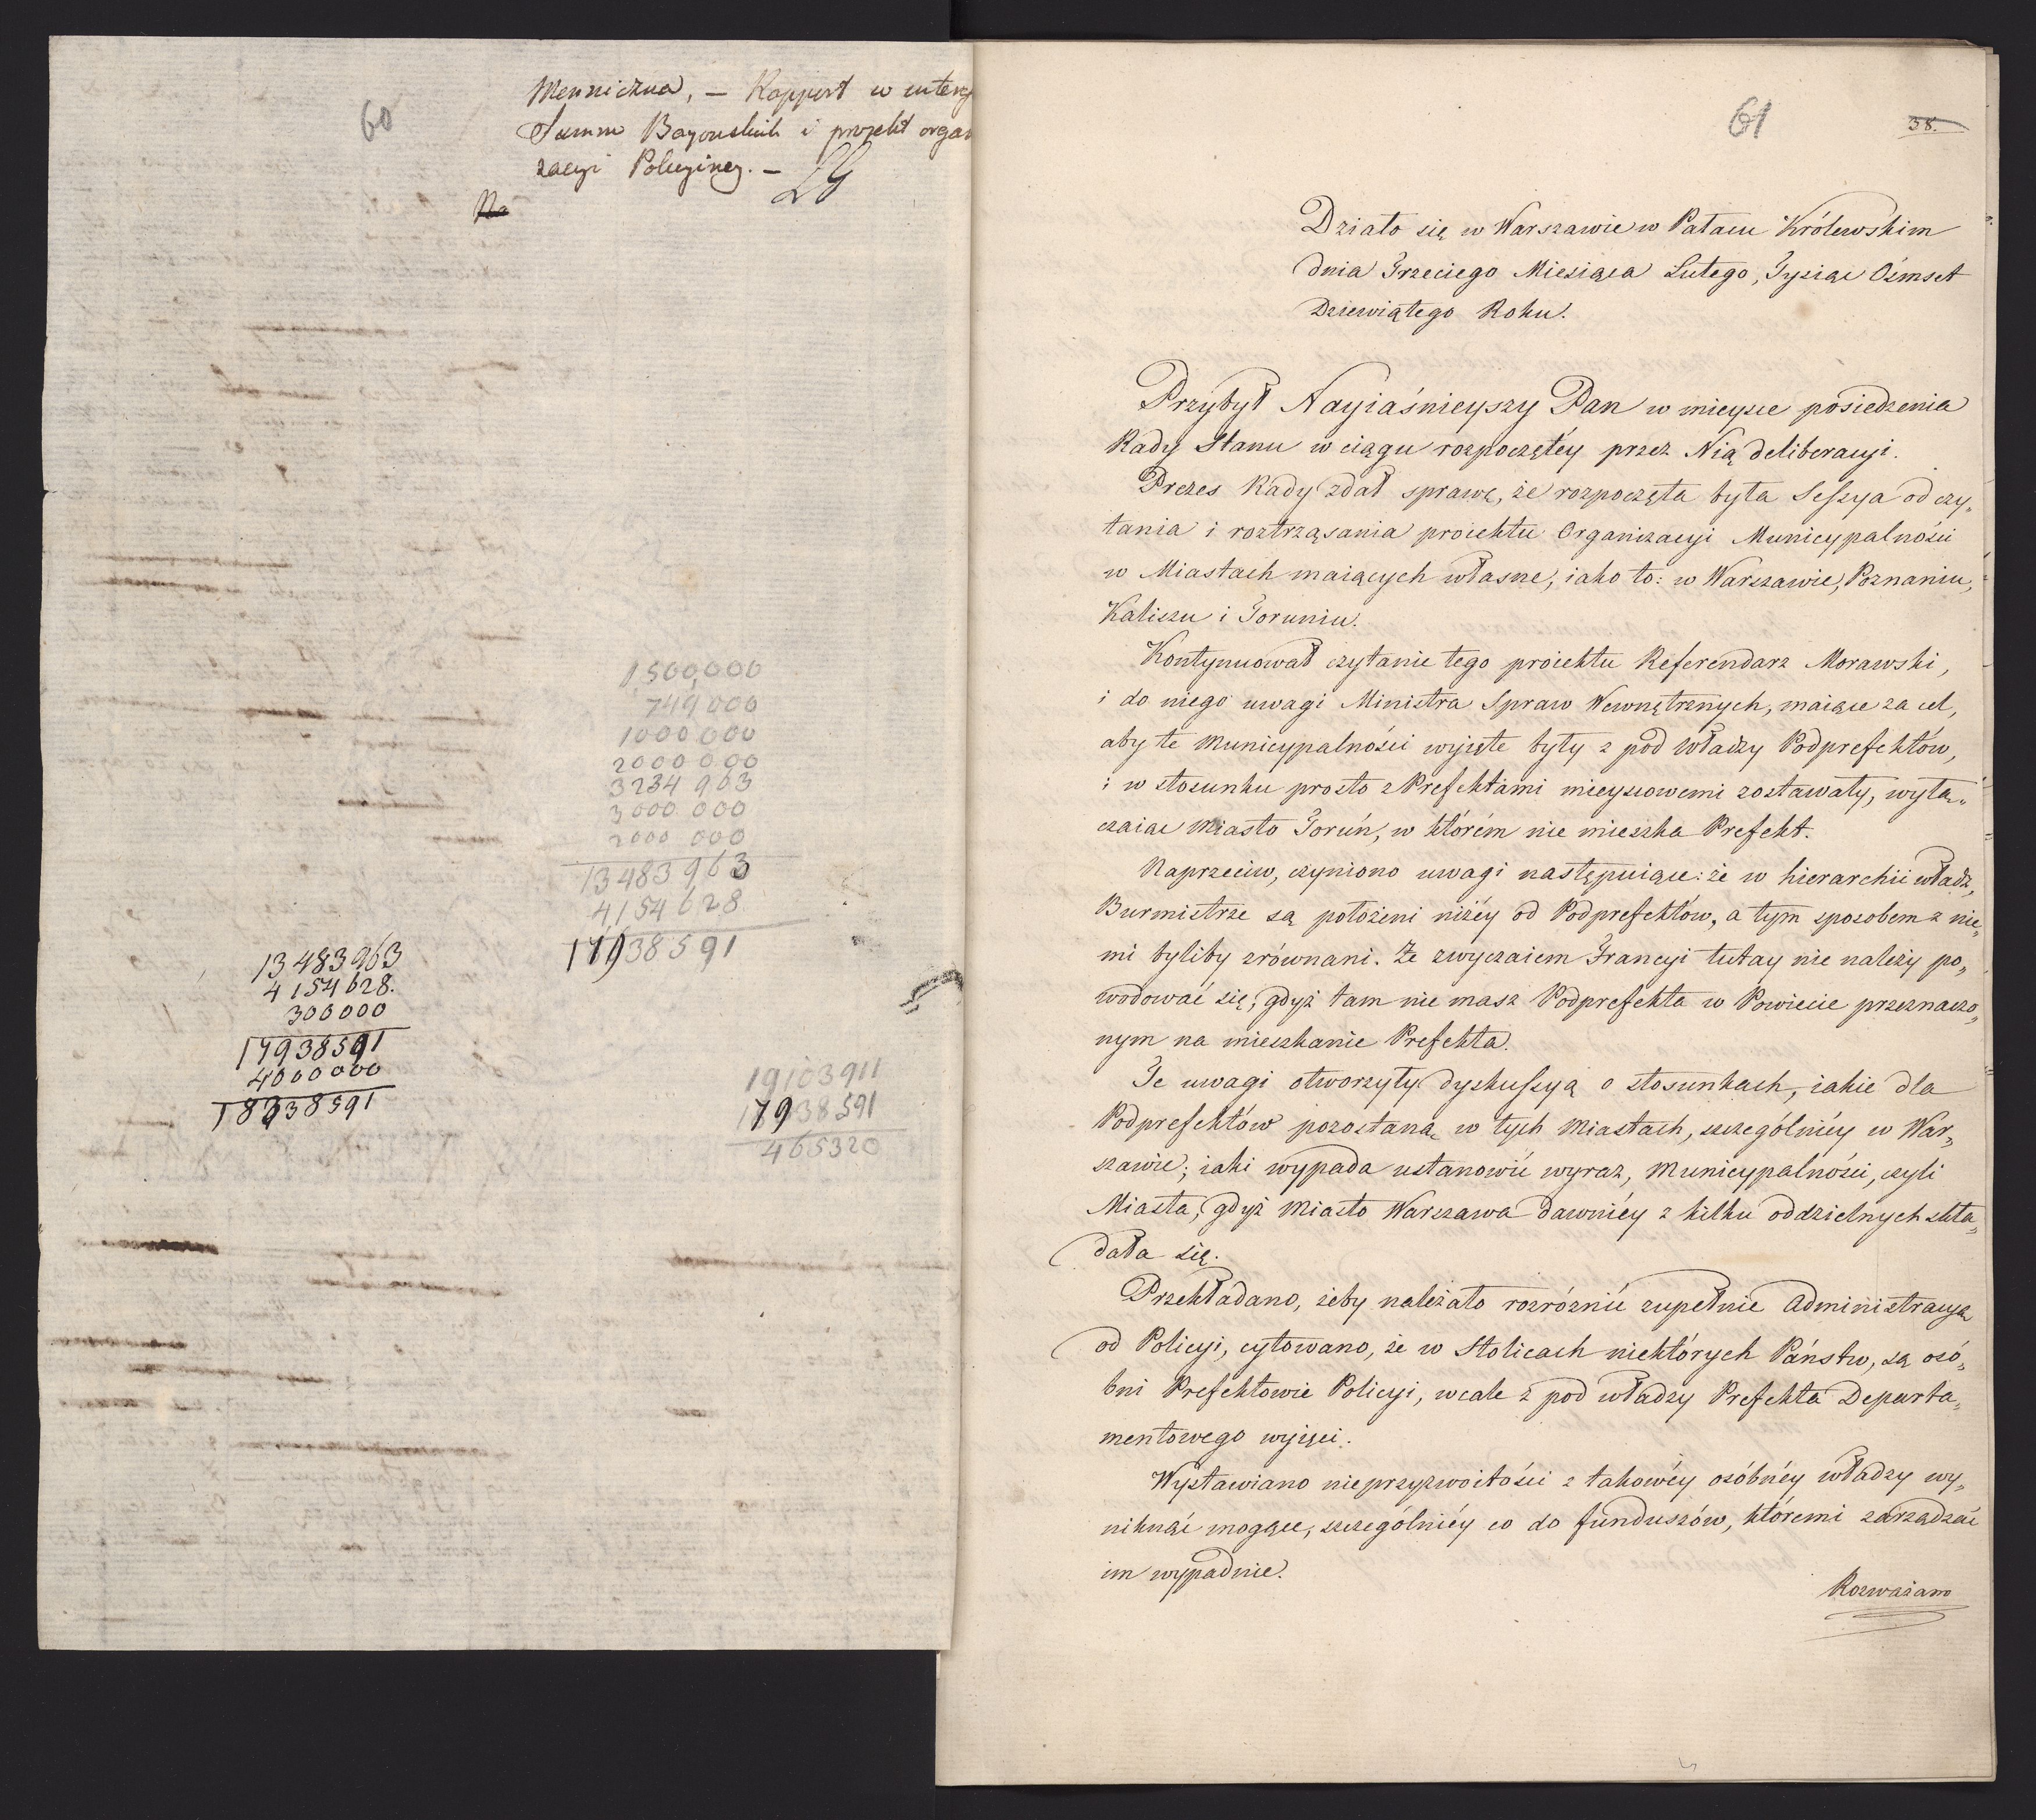 60
Menniczna, — Rapport w interes
Summ Bayońskich i projekt organ
zacyi Policyiney. —
29
Na
1500,000
749 000
1000 000
2000 000
3234 963
3000 000
2000 000
13483963
4154628
17938591
13 483 963
4 154 628.
300000
17938591
4000000
18338591
19103911
17938591
465320
61
38.
Działo się w Warszawie w Pałacu Królewskim
dnia Trzeciego Miesiąca Lutego, Tysiąc Ośmset
Dziewiątego Roku.
Przybył Nayiaśnieyszy Pan w mieysce posiedzenia
Rady Stanu w ciągu rozpoczętéy przez Nią deliberacyi.
Prezes Rady zdał sprawę, że rozpoczęta była Sessya od czy„
tania i roztrząsania proiektu Organizacyi Municypalności
w Miastach maiących własne, iako to: w Warszawie, Poznaniu,
Kaliszu i Toruniu.
Kontynuował czytanie tego proiektu Referendarz Morawski,
i do niego uwagi Ministra Spraw Wewnętrznych, maiące za cel,
aby te Municypalności wyięte były z pod władzy Podprefektów,
i w stosunku prosto z Prefektami mieyscowemi zostawały, wyłą„
czaiąc Miasto Toruń, w którém nie mieszka Prefekt.
Naprzeciw, czyniono uwagi następuiące: że w hierarchii władz,
Burmistrze są położeni niżéy od Podprefektów, a tym sposobem z nie„
mi byliby zrównani. Że zwyczaiem Francyi tutay nie należy po„
wodować się, gdyż tam nie masz Podprefekta w Powiecie przeznaczo„
nym na mieszkanie Prefekta.
Te uwagi otworzyły dyskussyą o stosunkach, iakie dla
Podprefektów pozostaną w tych Miastach, szczególniéy w War„
szawie; iaki wypada ustanowić wyraz, Municypalności, czyli
Miasta, gdyż Miasto Warszawa dawniéy z kilku oddzielnych skła„
dała się.
Przekładano, żeby należało rozróżnić zupełnie Administracyą
od Policyi, cytowano, że w Stolicach niektórych Państw, są osó„
bni Prefektowie Policyi, wcale z pod władzy Prefekta Departa„
mentowego wyięci.
Wystawiano nieprzyzwoitości z takowéy osóbnéy władzy wy„
niknąć mogące, szczególniéy co do funduszów, któremi zarządzać
im wypadnie.
Rozważano